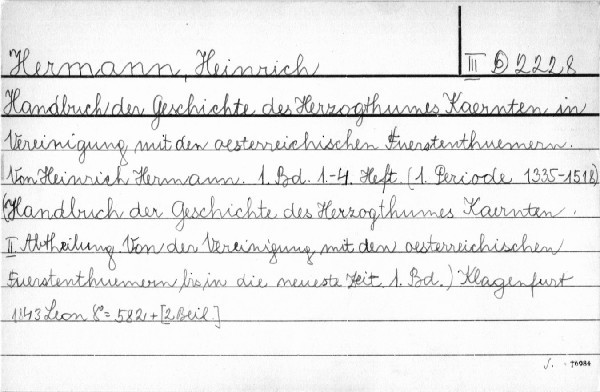 Hermann, Heinrich III D 2228
Handbuch der Geschichte des Herzogthumes Kaernten in
Vereinigung mit den oesterreichischen Fuerstenthuemern.
Von Heinrich Hermann. 1. Bd. 1.-4. Heft. (1. Periode 1335-1518)
(Handbuch der Geschichte des Herzogthumes Kaernten.
II Abtheilung. Von der Vereinigung mit den oesterreichischen
Fuerstenthuemern bis in die neueste Zeit. 1. Bd.) Klagenfurt
1843 Leon 8°= 582 + [2 Beil.]
J. - 76984